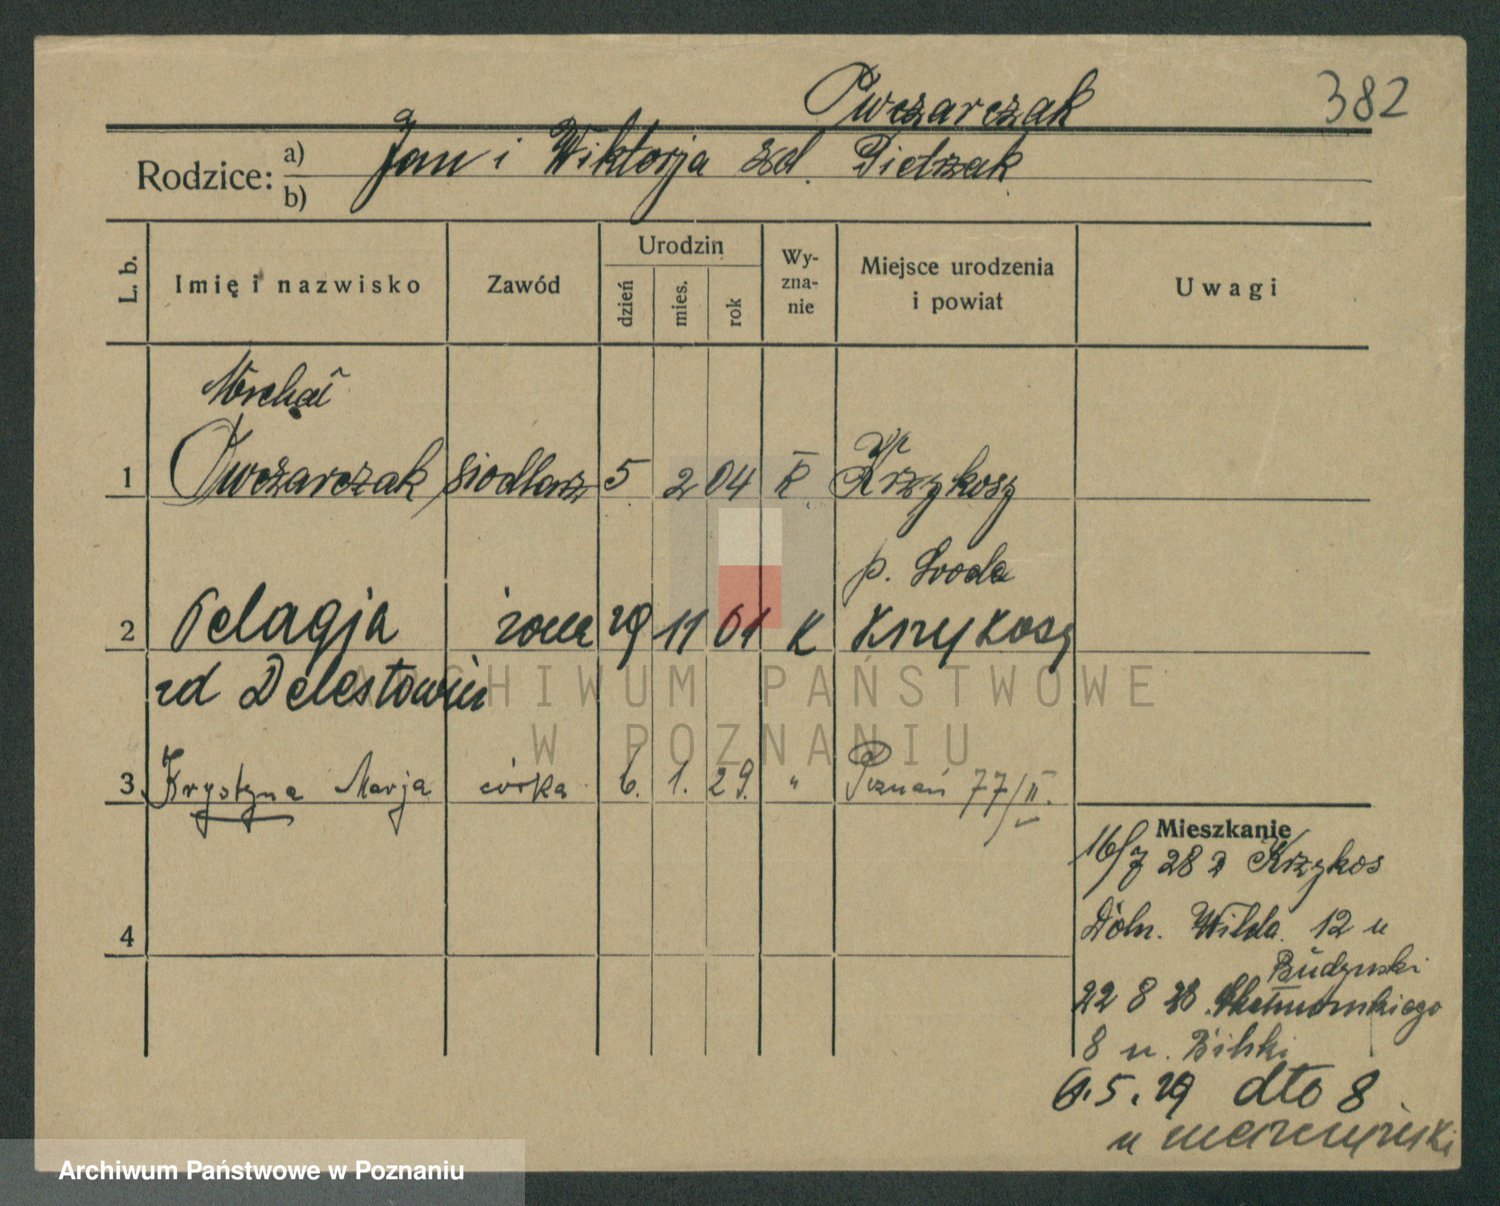 Owczarczak
382
Rodzice: a) Jan i Wiktorja zd. Pietrzak
b)
L. b.
Imię i nazwisko
Zawód
Urodzin
dzień
mies.
rok
Wy-
zna-
nie
Miejsce urodzenia
i powiat
Uwagi
Michał
1 Owczarczak siodlarz 5 2 04 K Krzykosy
p. Środa
2 Pelagja żona 29 11 01 K Krzykosy
zd
3 Krystyna Marja córka 6. 1. 29. " Poznań 77/II.
Mieszkanie
16/7 28 z Krzykos
4
Doln. Wilda 12 u
Budzynski
22 8 28
8 u. Bilski
6.5.29 dto 8
u
ARCHIWUM PAŃSTWOWE
W POZNANIU
Archiwum Państwowe w Poznaniu